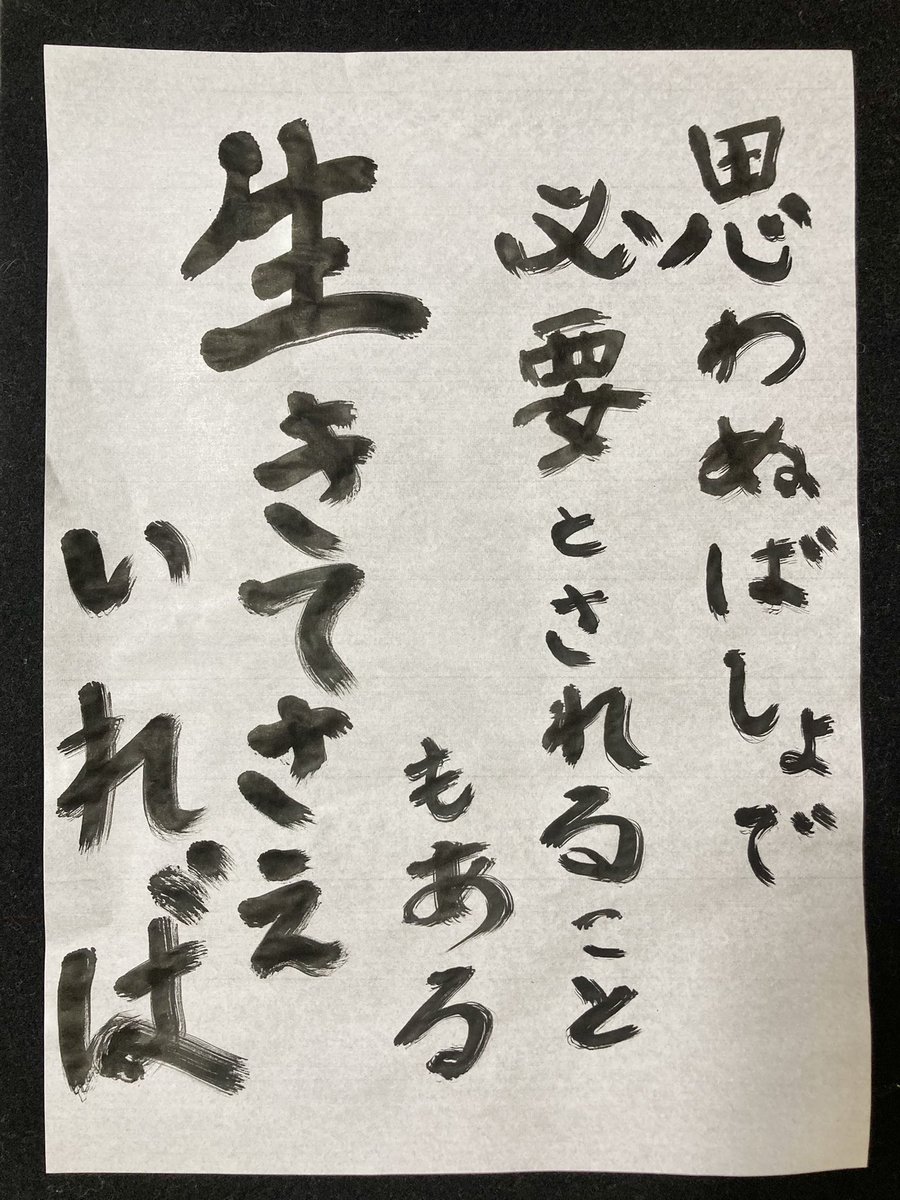 思わぬばしょで
必要とされること
もある
生きてさえ
いれば